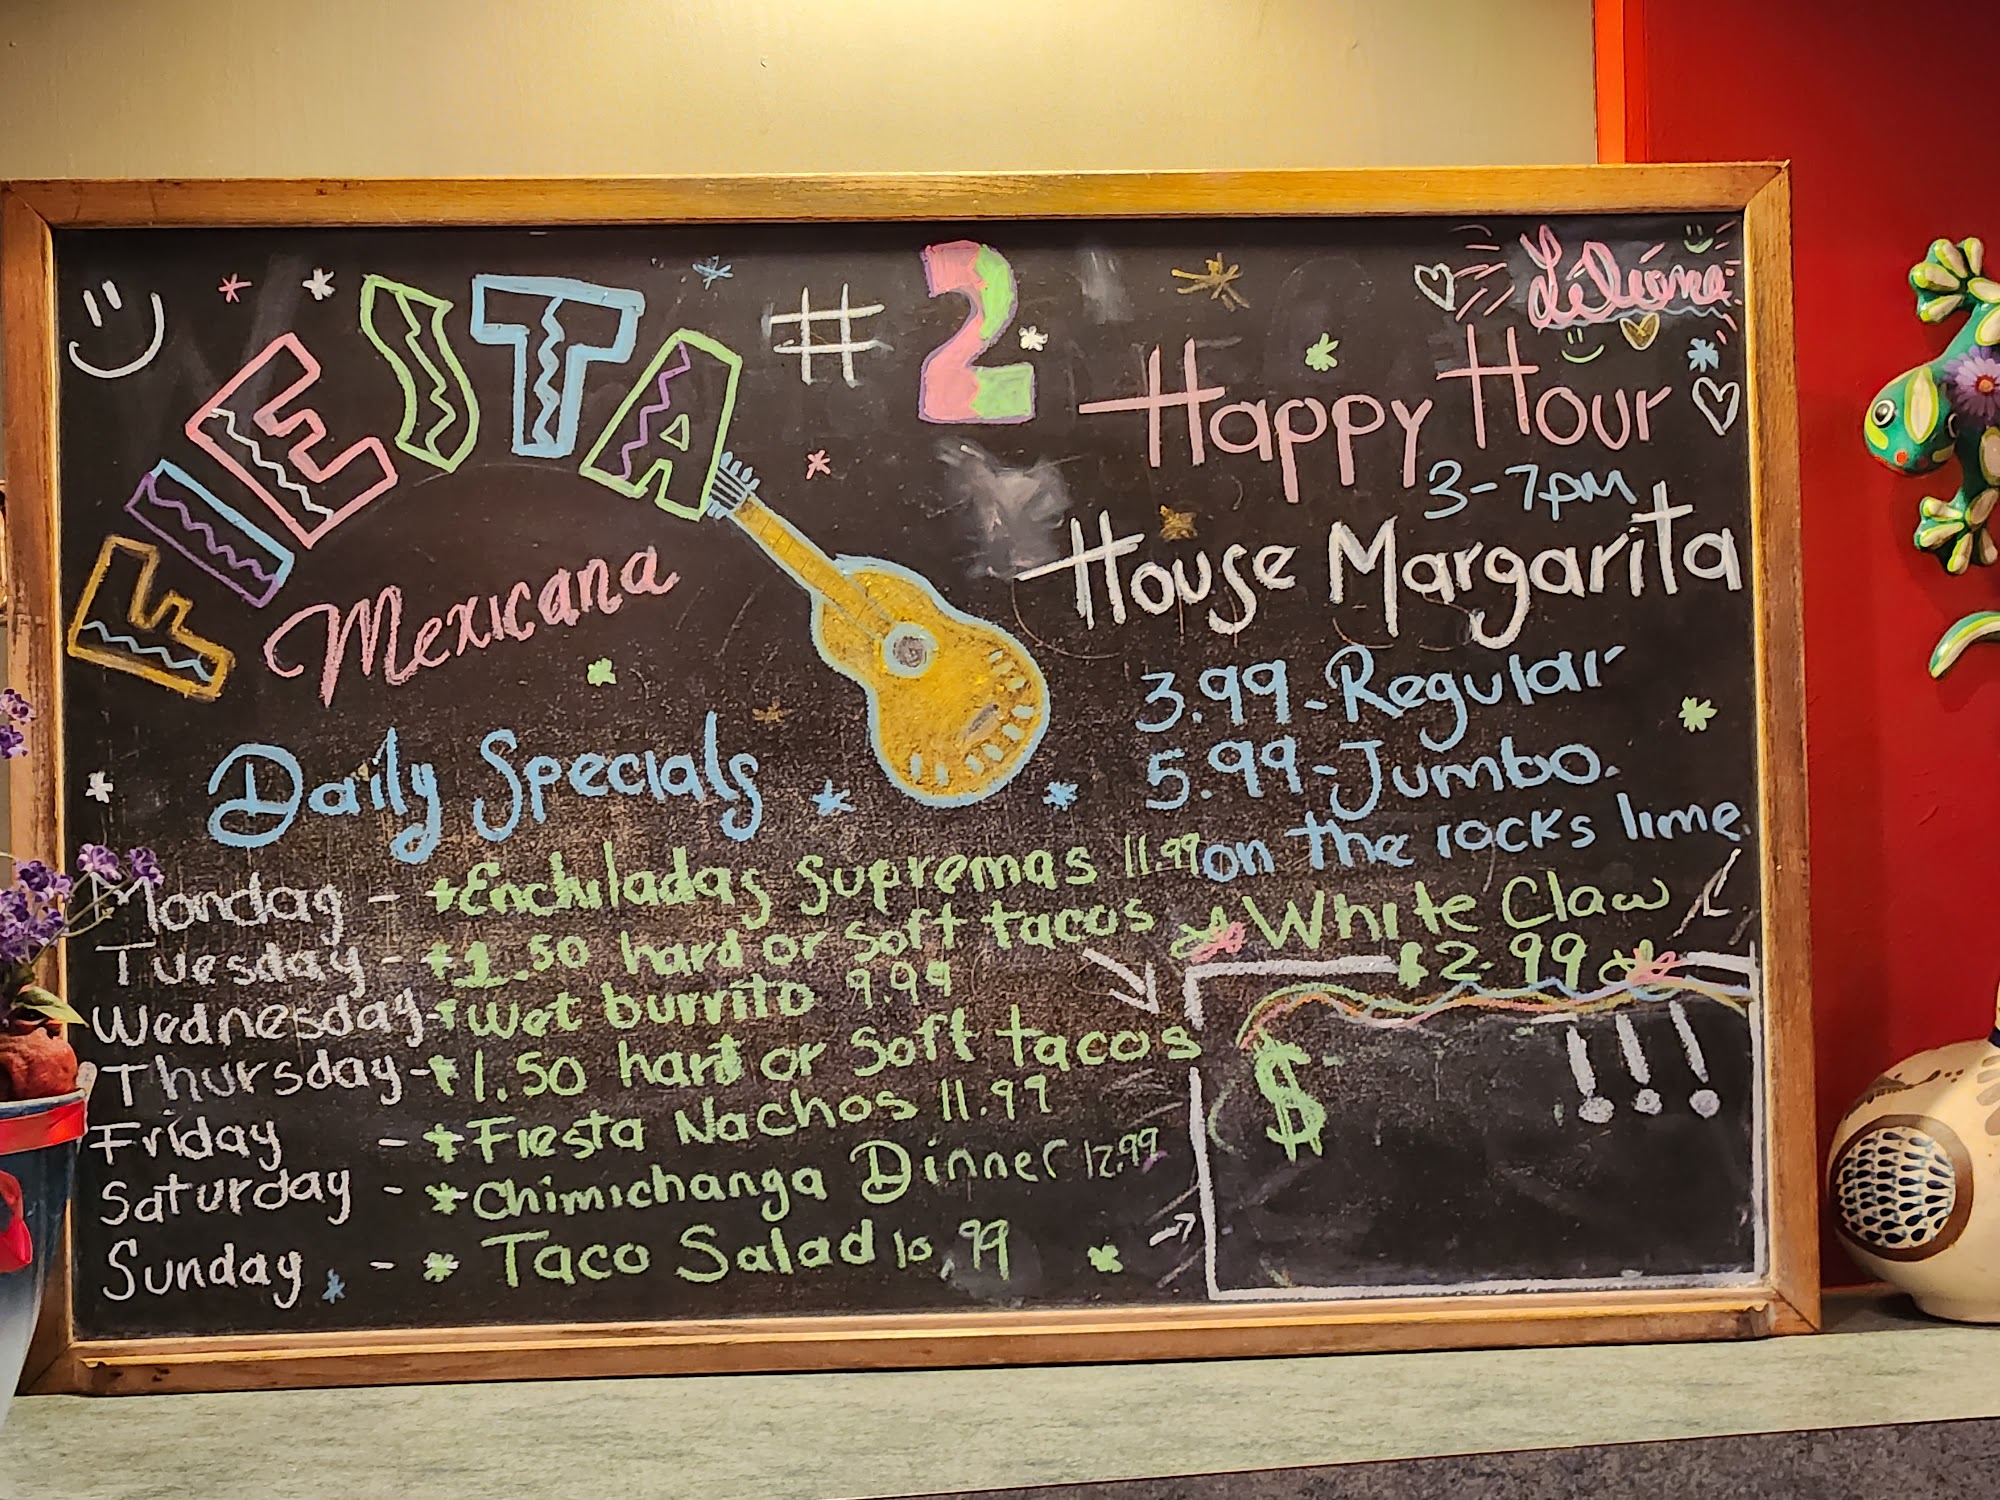 FIESTA #2
Mexicana
Daily Specials
Monday - *Enchiladas Supremas 11.99
Tuesday - *1.50 hard or soft tacos
Wednesday - *Wet burrito 9.99
Thursday - *1.50 hard or soft tacos
Friday - *Fiesta Nachos 11.99
Saturday - *Chimichanga Dinner 12.99
Sunday - * Taco Salad 10.99
Liliana
Happy Hour
3-7pm
House Margarita
3.99-Regular
5.99-Jumbo
on the rocks lime
White Claw
$2.99
$ !!!